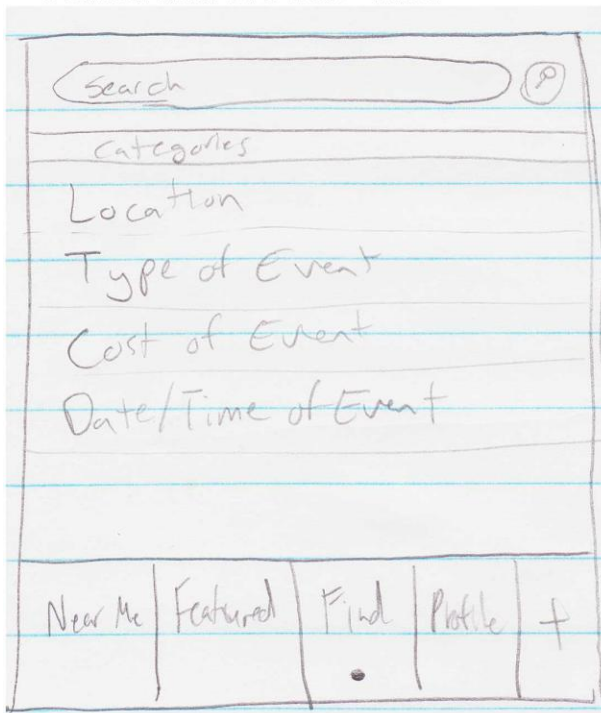 Search
Categories
Location
Type of Event
Cost of Event
Date/Time of Event
Near Me Featured Find Profile +